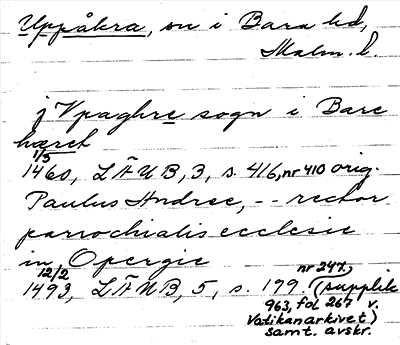 Uppåkra, sn i Bara hd,
Malm. l.
j Vpaghre sogn i Bare
hæret
1/5
1460, LÄUB, 3, s. 416, nr 410 orig.
Paulus Andree, -- rector
parrochialis ecclesie
in Opergie
12/2
1493, LÄUB, 5, s. 179. nr 247. (supplik
963, fol 267 v.
Vatikanarkivet)
samt. avskr.